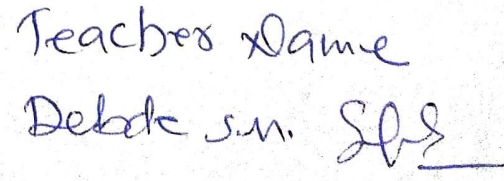 Teacher Name
Debde S.M.